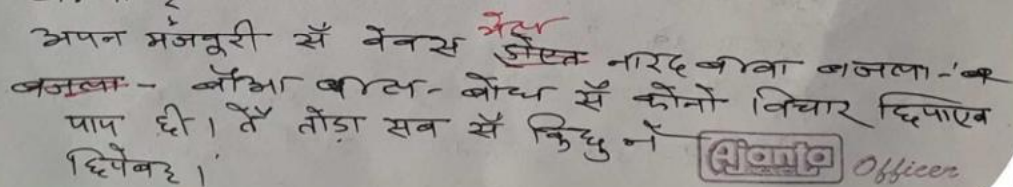 अपन मंजबूरी सँ वेवस भेल नारद बाबा बजला-
बजला - बौआ बाल-बोध सँ कोनो विचार छिपाएब
पाप छी। तेँ तोड़ा सब सँ किछु नें
छिपेबह।
Ajanta Officer